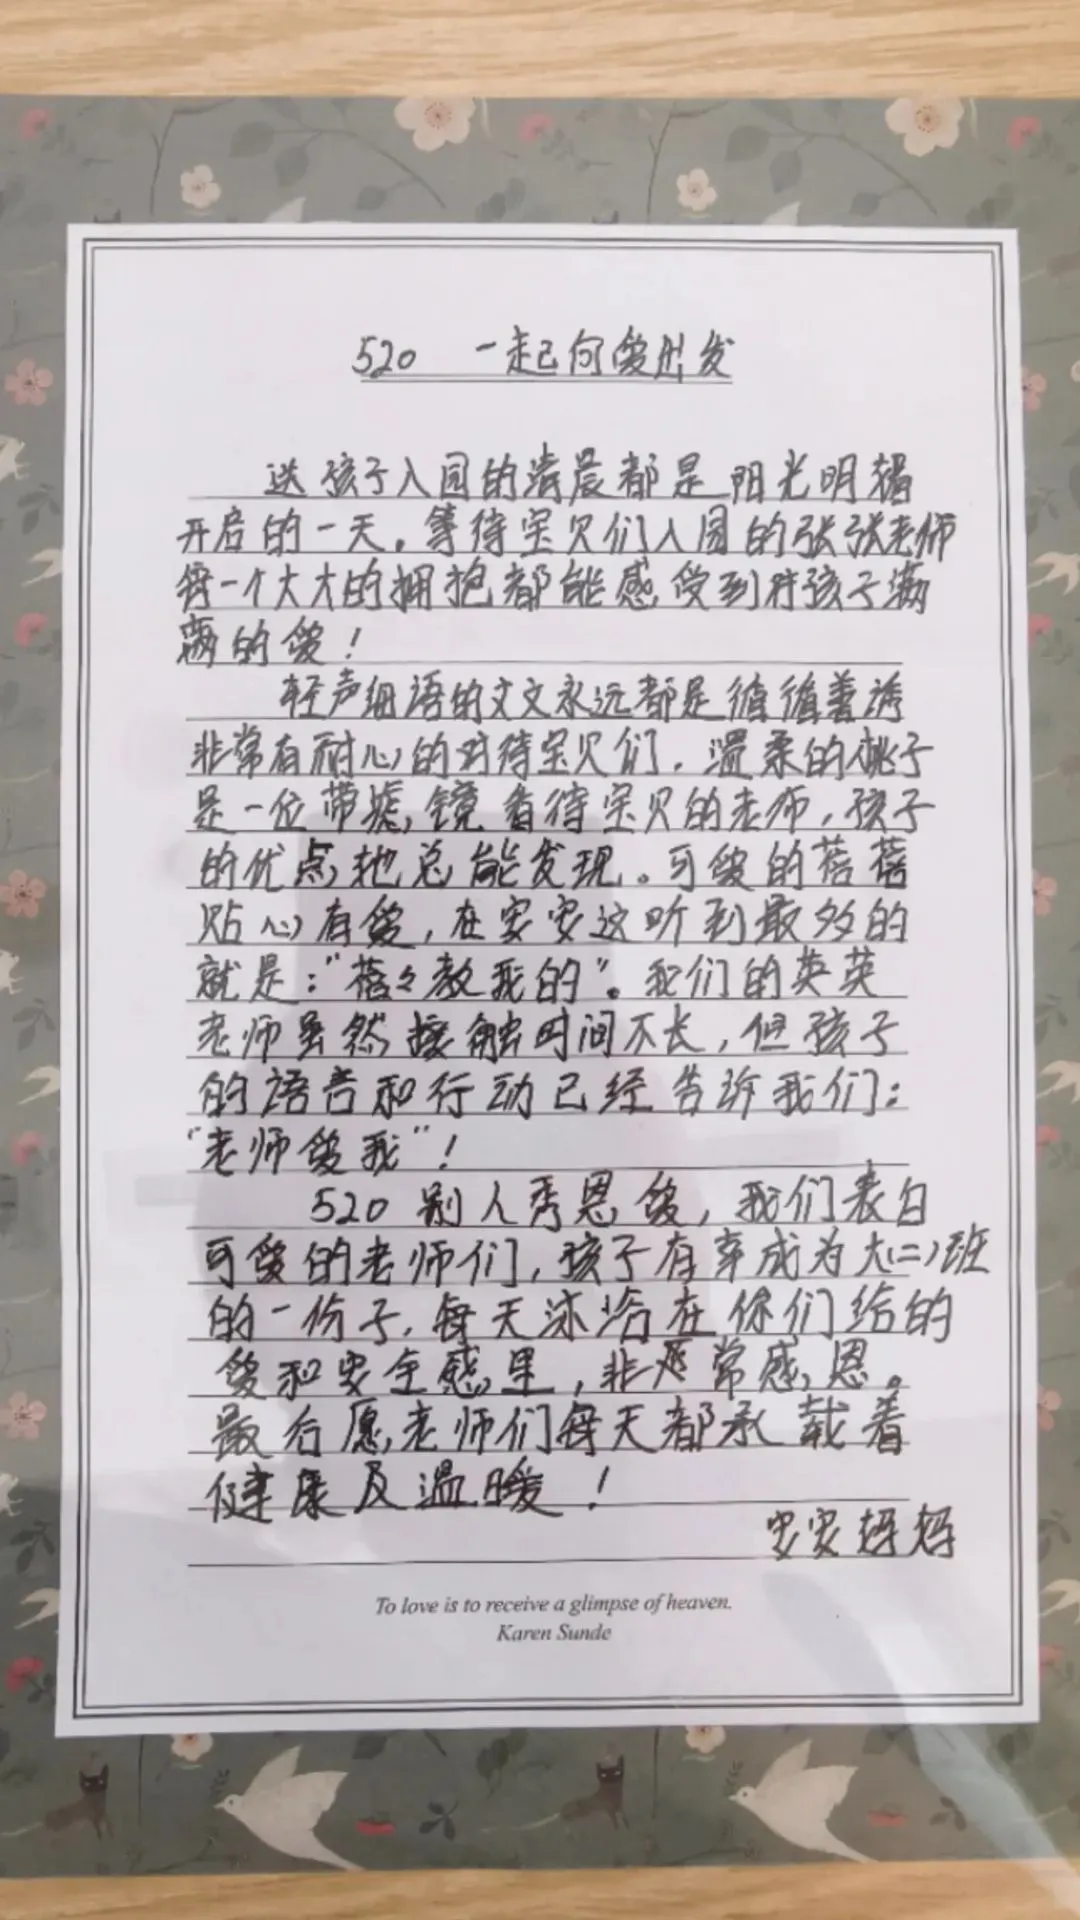 520 一起向爱出发
送孩子入园的清晨都是阳光明媚
开启的一天。等待宝贝们入园的张张老师
每一个大大的拥抱都能感受到对孩子满
满的爱！
轻声细语的文文永远都是循循善诱
非常有耐心的对待宝贝们，温柔的桃子
是一位带滤镜看待宝贝的老师，孩子
的优点她总能发现。可爱的蓓蓓
贴心有爱，在安安这听到最多的
就是：“蓓々教我的”。我们的英英
老师虽然接触时间不长，但孩子
的语言和行动已经告诉我们：
“老师爱我”！
520别人秀恩爱，我们表白
可爱的老师们，孩子有幸成为大(二)班
的一份子，每天沐浴在你们给的
爱和安全感里，非常感恩。
最后愿老师们每天都承载着
健康及温暖！
安安妈妈
To love is to receive a glimpse of heaven.
Karen Sunde